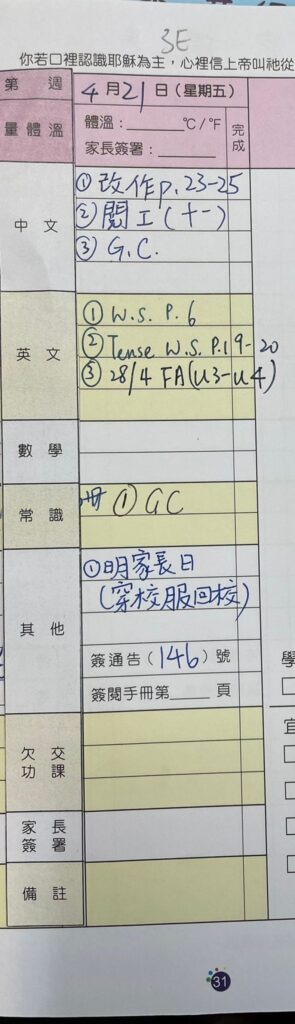 3E
你若口裡認識耶穌為主，心裡信上帝叫祂從
第 週 4月21日（星期五）
量體溫 體溫：______ °C/°F 完成
家長簽署：______
中文
① 改作p.23-25
② 閱工(十一)
③ G.C.
英文
① W.S. P.6
② Tense W.S. P.19-20
③ 28/4 FA(U3-U4)
數學
常識 冊 ① GC
其他
①明家長日
(穿校服回校)
簽通告（146）號
簽閱手冊第____頁
欠交功課
家長簽署
備註
31